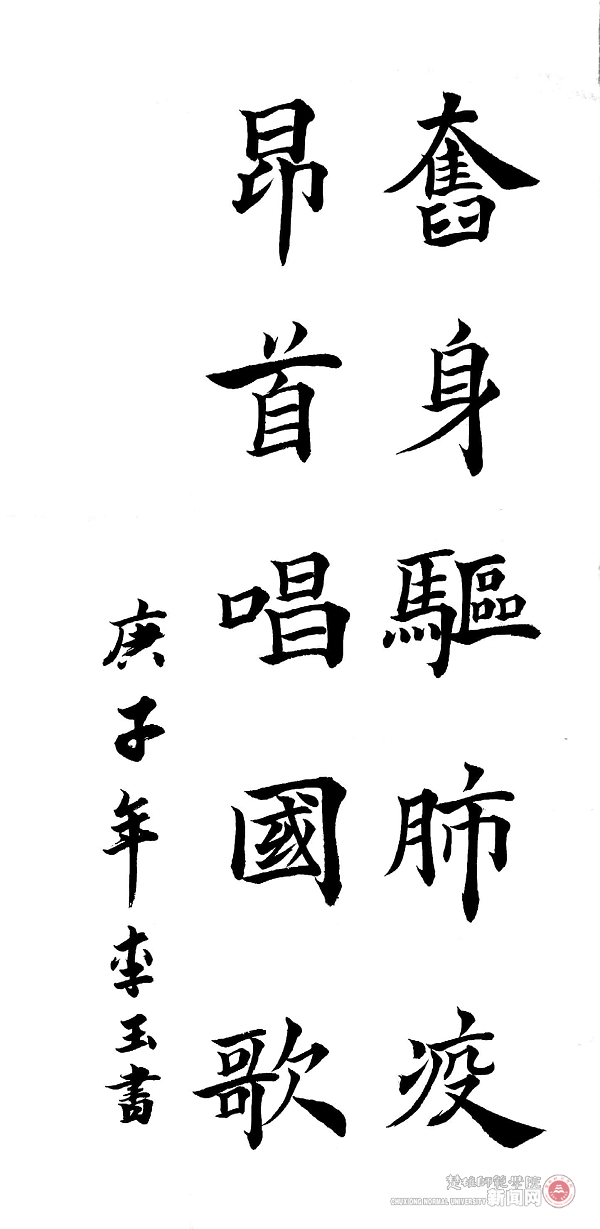 奮身驅肺疫
昂首唱國歌
庚子年李玉書
楚雄師範學院
CHUXIONG NORMAL UNIVERSITY
新闻网